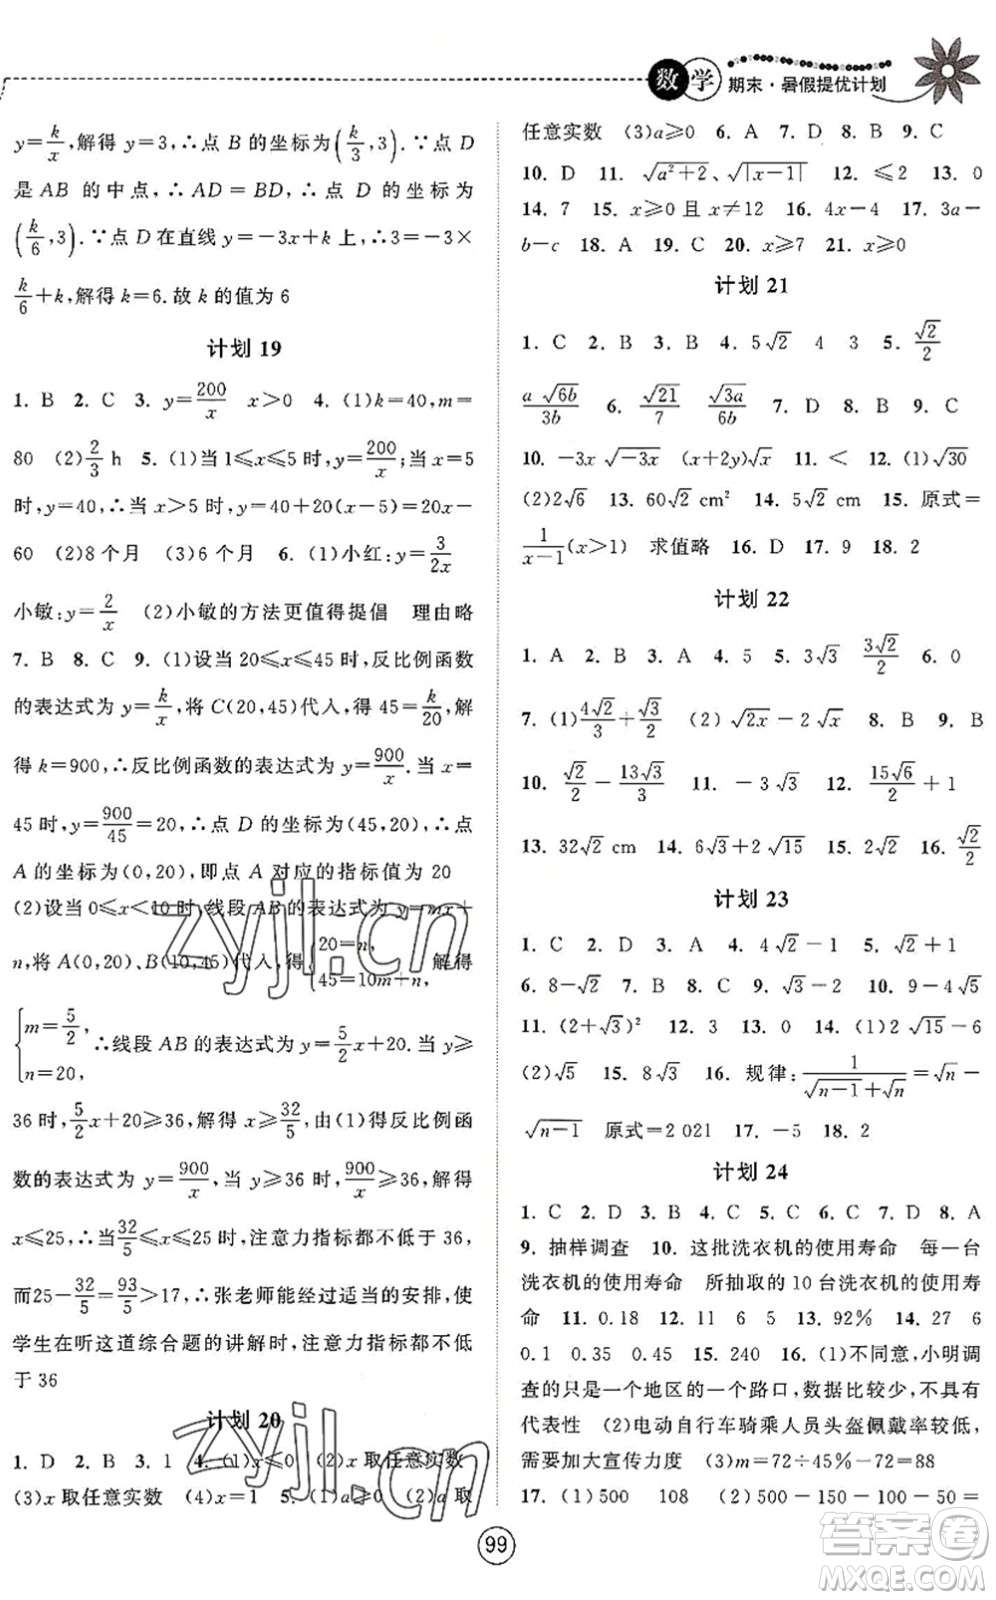 数学 期末·暑假提优计划
y=k/x,解得 x=k/3,y=3,∴点 B 的坐标为(k/3,3).∵点 D
是 AB 的中点,∴AD=BD,∴点 D 的坐标为
(k/6,3).∵点 D 在直线 y=-3x+k 上,∴3=-3×
k/6+k,解得 k=6.故 k 的值为 6
计划 19
1. B 2. C 3. y=200/x x>0 4. (1)k=40,m=
80 (2)2/3 h 5. (1)当 1≤x≤5 时,y=200/x;当 x=5
时,y=40,∴当 x>5 时,y=40+20(x-5)=20x-
60 (2)8 个月 (3)6 个月 6. (1)小红:y=3/2x
小敏:y=2/x (2)小敏的方法更值得提倡 理由略
7. B 8. C 9. (1)设当 20≤x≤45 时,反比例函数
的表达式为 y=k/x,将 C(20,45)代人,得 45=k/20,解
得 k=900,∴反比例函数的表达式为 y=900/x.当 x=
45 时,y=900/45=20,∴点 D 的坐标为(45,20),∴点
A 的坐标为(0,20),即点 A 对应的指标值为 20
(2)设当 0≤x<10 时,线段 AB 的表达式为 y=mx+
n,将 A(0,20)、B(10,45)代人,得{20=n, 45=10m+n, 解得
{m=5/2, n=20, ∴线段 AB 的表达式为 y=5/2x+20.当 y≥
36 时,5/2x+20≥36,解得 x≥32/5;由(1)得反比例函
数的表达式为 y=900/x,当 y≥36 时,900/x≥36,解得
x≤25,∴当32/5≤x≤25 时,注意力指标都不低于 36,
而25-32/5=93/5>17,∴张老师能经过适当的安排,使
学生在听这道综合题的讲解时,注意力指标都不低
于 36
计划 20
1. D 2. B 3. 1 4. (1)x≤0 (2)x 取任意实数
(3)x 取任意实数 (4)x=1 5. (1)a≥0 (2)a 取
任意实数 (3)a≥0 6. A 7. D 8. B 9. C
10. D 11. √(a²+2)、√|x-1| 12. ≤2 13. 0
14. 7 15. x≥0 且 x≠12 16. 4x-4 17. 3a-
b-c 18. A 19. C 20. x≥7 21. x≥0
计划 21
1. C 2. B 3. B 4. 5√2 4 3 5. √2/2
a√6b/3b 6. √21/7 √3a/6b 7. D 8. B 9. C
10. -3x√-3x (x+2y)√x 11. < 12. (1)√30
(2)2√6 13. 60√2 cm² 14. 5√2 cm 15. 原式=
1/(x-1)(x>1) 求值略 16. D 17. 9 18. 2
计划 22
1. A 2. B 3. A 4. 5 5. 3√3 3√2/2 6. 0
7. (1)4√2/3+√3/2 (2)√2x-2√x 8. B 9. B
10. √2/2-13√3/3 11. -3√3 12. 15√6/2+1
13. 32√2 cm 14. 6√3+2√15 15. 2 16. √2/2
计划 23
1. C 2. D 3. A 4. 4√2-1 5. √2+1
6. 8-√2 7. B 8. C 9. √3-2 10. 9-4√5
11. (2+√3)² 12. 3 13. 0 14. (1)2√15-6
(2)√5 15. 8√3 16. 规律:1/(√(n-1)+√n)=√n-
√(n-1) 原式=2 021 17. -5 18. 2
计划 24
1. C 2. D 3. B 4. C 5. C 6. C 7. D 8. A
9. 抽样调查 10. 这批洗衣机的使用寿命 每一台
洗衣机的使用寿命 所抽取的 10 台洗衣机的使用寿
命 11. 0.18 12. 11 6 5 13. 92% 14. 27 6
0.1 0.35 0.45 15. 240 16. (1)不同意,小明调
查的只是一个地区的一个路口,数据比较少,不具有
代表性 (2)电动自行车骑乘人员头盔佩戴率较低,
需要加大宣传力度 (3)m=72÷45%-72=88
17. (1)500 108 (2)500-150-100-50=
99
zyjl.cn
zyjl.cn
答案圈
MXQE.COM